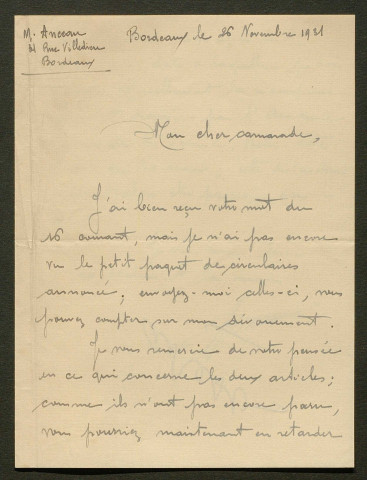 M. Anceau
Rue Villedieu
Bordeaux
Bordeaux le 26 Novembre 1921
Mon cher camarade,
J'ai bien reçu votre mot du
16 courant, mais je n'ai pas encore
vu le petit paquet de circulaires
annoncé; envoyez-moi celles-ci, vous
pouvez compter sur mon dévouement.
Je vous remercie de votre pensée
en ce qui concerne les deux articles;
comme ils n'ont pas encore paru,
vous pourriez maintenant en retarder